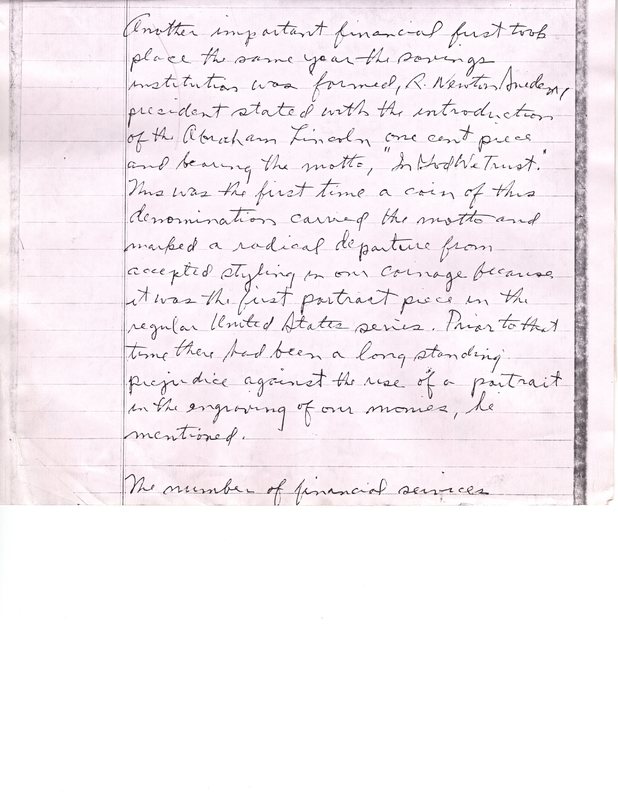 Another important financial first took
place the same year the savings
institution was formed, R. Newton
president stated with the introduction
of the Abraham Lincoln one cent piece
and bearing the motto, "In God We Trust."
This was the first time a coin of this
denomination carried the motto and
marked a radical departure from
accepted styling in our coinage because
it was the first portrait piece in the
regular United States series. Prior to that
time there had been a long standing
prejudice against the use of a portrait
in the engraving of our monies, he
mentioned.
The number of financial services